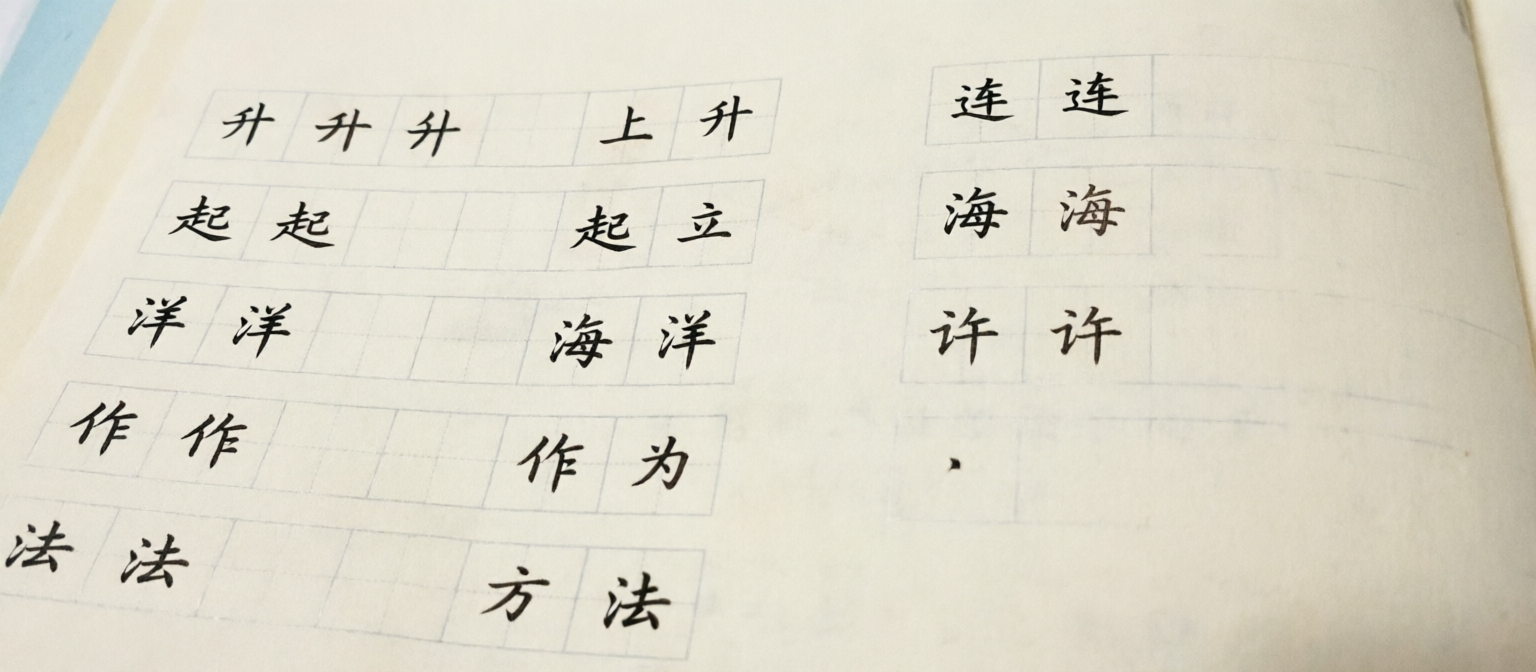 升 升 升 上 升
起 起 起 立
洋 洋 海 洋
作 作 作 为
法 法 方 法
连 连
海 海
许 许